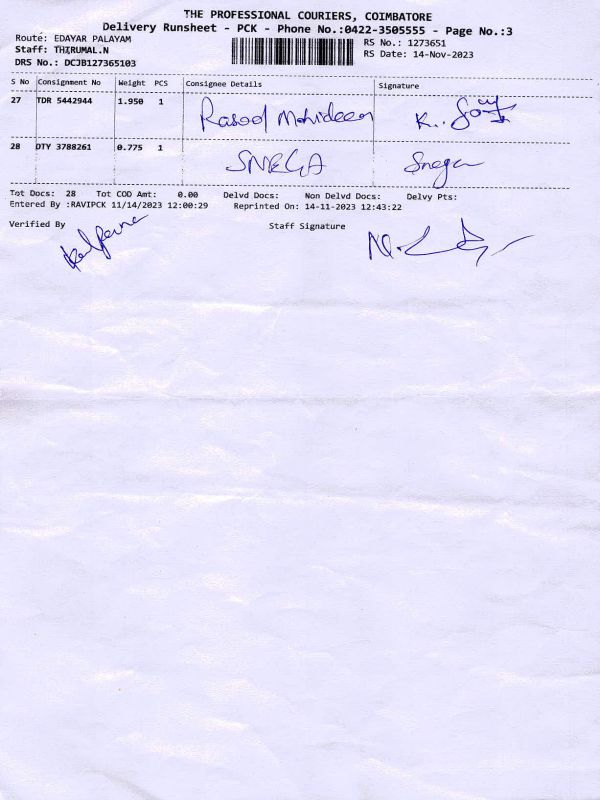 THE PROFESSIONAL COURIERS, COIMBATORE
Delivery Runsheet - PCK - Phone No.:0422-3505555 - Page No.:3
Route: EDAYAR PALAYAM RS No.: 1273651
Staff: THIRUMAL.N RS Date: 14-Nov-2023
DRS No.: DCJB127365103
S No Consignment No Weight PCS Consignee Details Signature
27 TDR 5442944 1.950 1 Rasool Mohideen
28 DTY 3788261 0.775 1 SNEGA Snega
Tot Docs: 28 Tot COD Amt: 0.00 Delvd Docs: Non Delvd Docs: Delvy Pts:
Entered By :RAVIPCK 11/14/2023 12:00:29 Reprinted On: 14-11-2023 12:43:22
Verified By Staff Signature